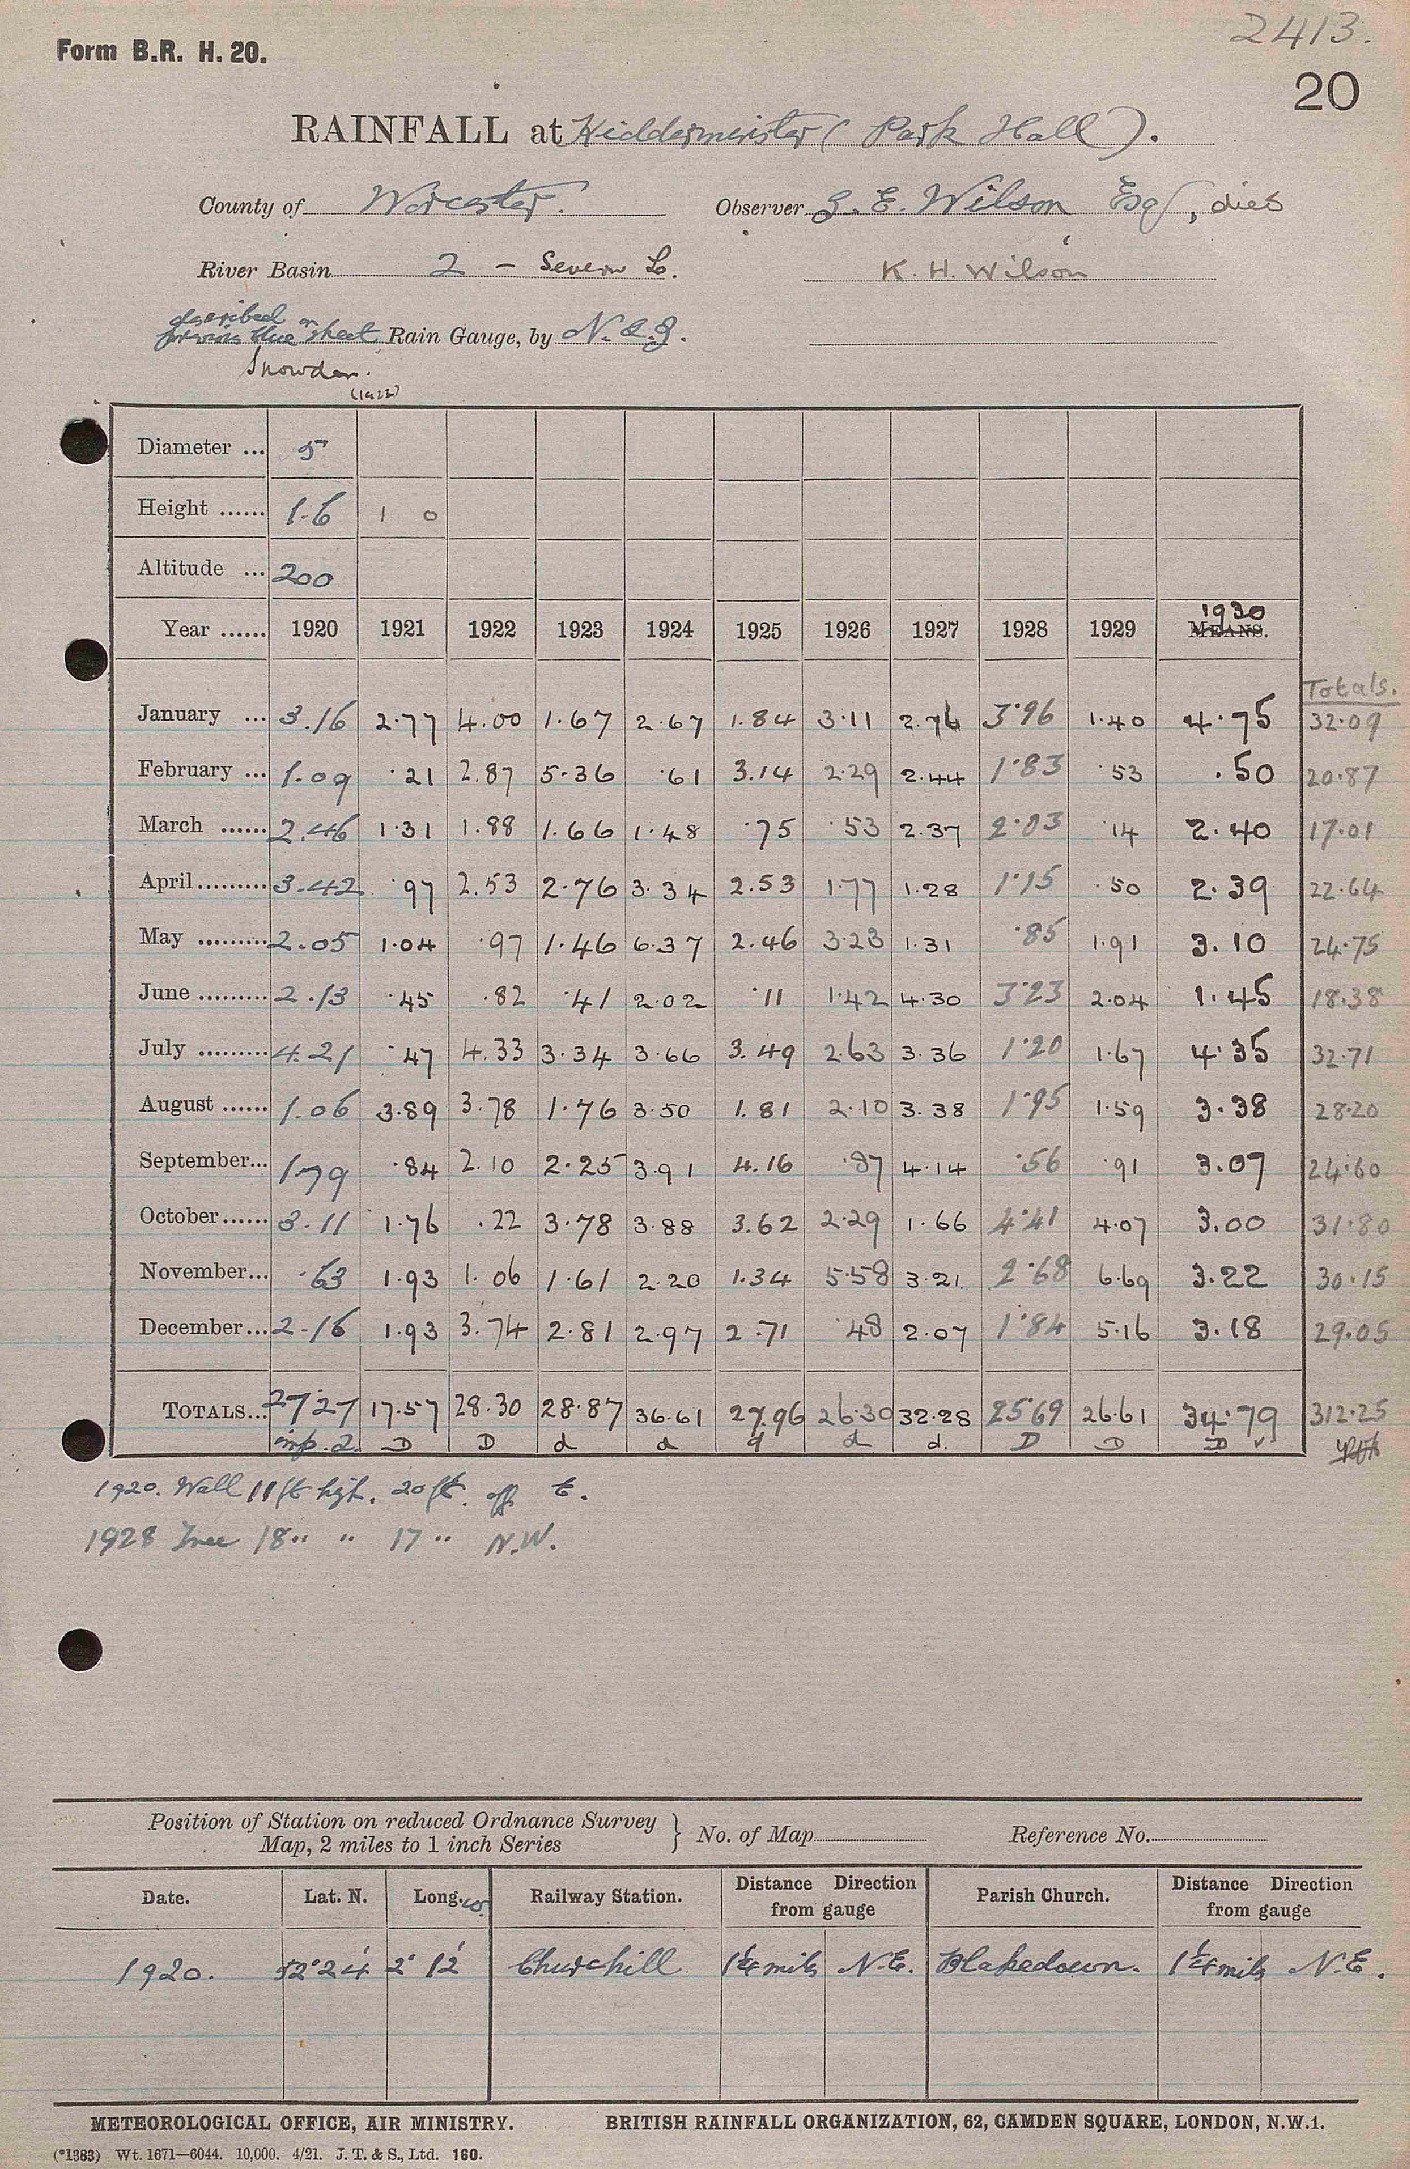 2413.
Form B.R. H. 20.
20
RAINFALL at Kidderminster (Park Hall).
County of Worcester. Observer G. E. Wilson Esq, dies
River Basin 2 - Severn L. K. H. Wilson
described on
previous blue sheet Rain Gauge, by N. & Z.
Snowdon.
(1922)
Diameter ... 5
Height ...... 1.6 1 0
Altitude ... 200
Year ...... 1920 1921 1922 1923 1924 1925 1926 1927 1928 1929 MEANS. 1930
Totals.
January ... 3.16 2.77 4.00 1.67 2.67 1.84 3.11 2.76 3.96 1.40 4.75 32.09
February ... 1.09 .21 2.87 5.36 .61 3.14 2.29 2.44 1.83 .53 .50 20.87
March ...... 2.46 1.31 1.88 1.66 1.48 .75 .53 2.37 2.03 .14 2.40 17.01
April ......... 3.42 .97 2.53 2.76 3.34 2.53 1.77 1.28 1.15 .50 2.39 22.64
May ......... 2.05 1.04 .97 1.46 6.37 2.46 3.23 1.31 .85 1.91 3.10 24.75
June ......... 2.13 .45 .82 .41 2.02 .11 1.42 4.30 3.23 2.04 1.45 18.38
July ......... 4.21 .47 4.33 3.34 3.66 3.49 2.63 3.36 1.20 1.67 4.35 32.71
August ...... 1.06 3.89 3.78 1.76 3.50 1.81 2.10 3.38 1.95 1.59 3.38 28.20
September... 1.79 .84 2.10 2.25 3.91 4.16 .87 4.14 .56 .91 3.07 24.60
October...... 3.11 1.76 .22 3.78 3.88 3.62 2.29 1.66 4.41 4.07 3.00 31.80
November... .63 1.93 1.06 1.61 2.20 1.34 5.58 3.21 2.68 6.69 3.22 30.15
December... 2.16 1.93 3.74 2.81 2.97 2.71 .48 2.07 1.84 5.16 3.18 29.05
TOTALS... 27.27 17.57 28.30 28.87 36.61 27.96 26.30 32.28 25.69 26.61 34.79 312.25
inp. 2. D D d d d d. D D D v
1920. Wall 11ft high, 20ft. off E.
1928 Tree 18 " " 17 " N.W.
Position of Station on reduced Ordnance Survey
Map, 2 miles to 1 inch Series } No. of Map Reference No.
Date. Lat. N. Long. W. Railway Station. Distance Direction from gauge Parish Church. Distance Direction from gauge
1920. 52° 24' 2° 12' Churchill 1¼ mils N.E. Blakedown. 1¼ mils N.E.
METEOROLOGICAL OFFICE, AIR MINISTRY. BRITISH RAINFALL ORGANIZATION, 62, CAMDEN SQUARE, LONDON, N.W.1.
(*1383) Wt. 1671—6044. 10,000. 4/21. J. T. & S., Ltd. 160.